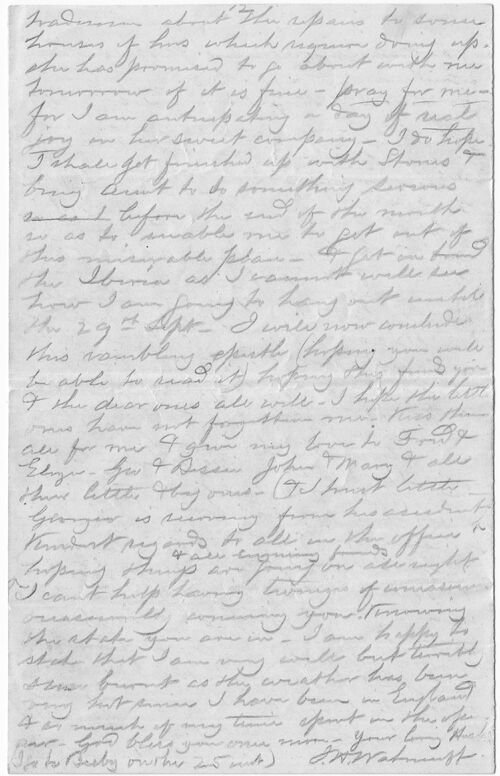 tradesmen about the repairs to some
houses of hers which require doing up.
she has promised to go about with me
tomorrow if it is fine - pray for me -
for I am anticipating a day of real
joy in her sweet company - I do hope
I shall get finished up with Stones &
bring aunt to do something serious
before the end of the month
so as to enable me to get out of
this miserable place - & get on
the Iberia as I cannot well see
how I am going to hang out until
the 29th Sept - I will now conclude
this rambling epistle (hoping you will
be able to read it) hoping this finds you
& the dear ones all well - I hope the little
ones have not forgotten me. Kiss them
all for me & give my love to Fred &
Eliza - Geo & Bessie John & Mary & all
their little & big ones - (& I trust little
Georgie is recovering from his accident
Kindest regards to all in the office
& all enquiring friends
hoping things are going on all right
I can't help having twinges of uneasiness
occasionally concerning you. Knowing
the state you are in - I am happy to
state that I am very well but terribly
sun burnt as the weather has been
very hot since I have been in England
& so much of my time spent in the open
air - God bless you once more - Your loving Husb
I go to on the 25 inst)